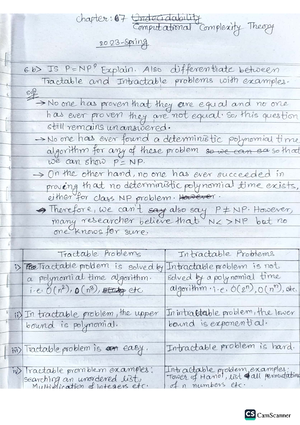 Chapter: 07 Undecidability
Computational Complexity Theory
2023-Spring
6.b) Is P=NP? Explain. Also differentiate between
Tractable and Intractable problems with examples.
→ No one has proven that they are equal and no one
has ever proven they are not equal. So this question
still remains unanswered.
→ No one has ever found a deterministic polynomial time
algorithm for any of these problem so we can so that
we can show P = NP.
→ On the other hand, no one has ever succeeded in
proving that no deterministic polynomial time exists,
either for class NP problem. However
→ Therefore, we can't say also say P ≠ NP. However,
many researcher believe that but no
one knows for sure.
Tractable Problems Intractable Problems
i) Tractable problem is solved by
a polynomial time algorithm.
i.e. O(n²), O(n³) etc.
Intractable problem is not
solved by a polynomial time
algorithm. i.e. etc.
ii) In tractable problem, the upper
bound is polynomial.
In intractable problem, the lower
bound is exponential.
iii) Tractable problem is easy.
Intractable problem is hard.
iv) Tractable problem examples:
searching an unordered list,
Multiplication of integers etc.
Intractable problem examples:
Tower of Hanoi, list all permutations
of n numbers etc.
CS CamScanner